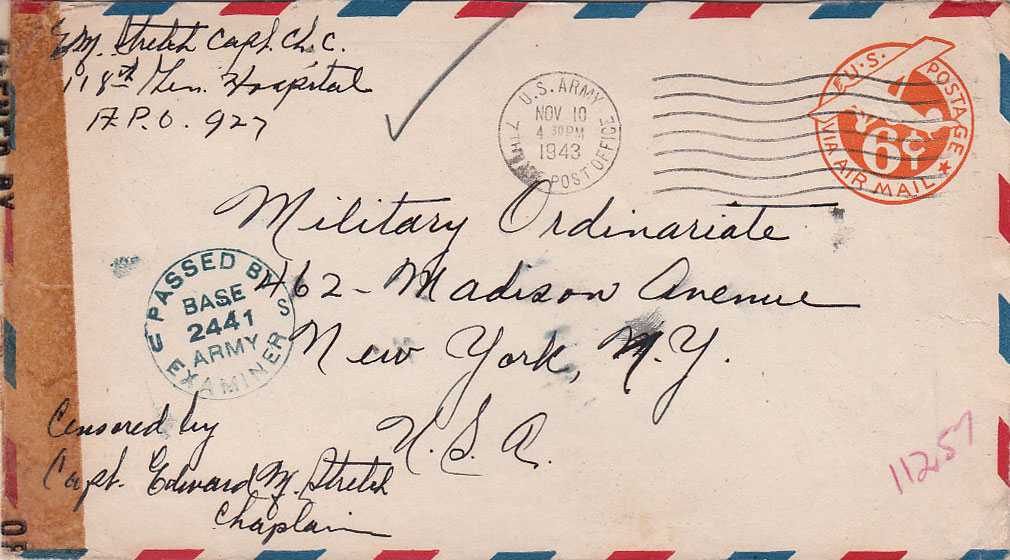 E.M. Stretch Capt. Ch. C.
118th Gen. Hospital
A.P.O. 927
U.S. ARMY
NOV 10
4 30 PM
1943
7TH
POST OFFICE
U.S. POSTAGE
6¢
VIA AIR MAIL
Military Ordinariate
462 - Madison Avenue
New York, N.Y.
U.S.A.
PASSED BY
U S
BASE
2441
ARMY
EXAMINER
Censored by
Capt. Edward M. Stretch
Chaplain
11257
OPENED BY